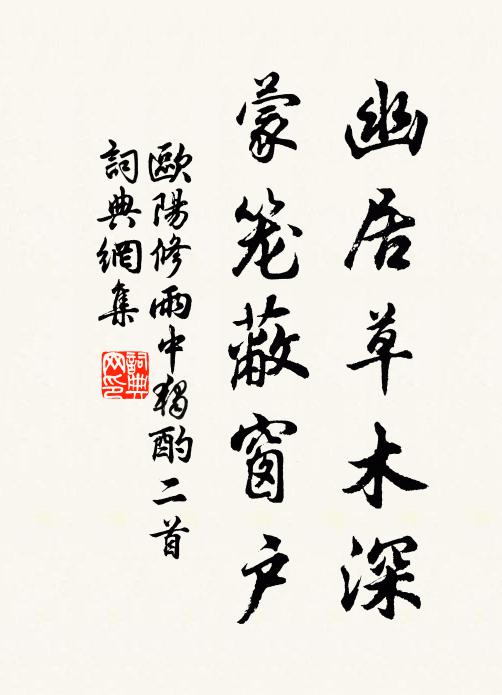 幽居草木深
蒙笼蔽窗户
歐陽修雨中獨酌二首
詞典網集
詞典网印